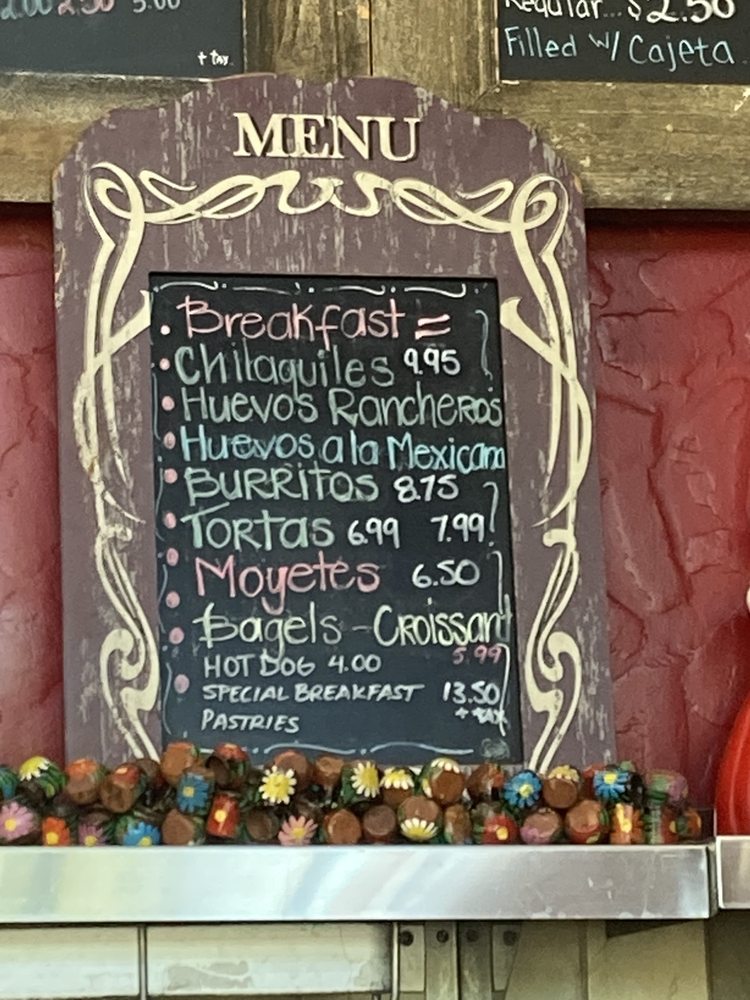 2.00 2.50 5.00
+ tax
Regular... $2.50
Filled w/ Cajeta
MENU
Breakfast =
Chilaquiles 9.95
Huevos Rancheros
Huevos a la Mexicana
BURRITOS 8.75
TORTAS 6.99 7.99
Moyetes 6.50
Bagels - CROISSANT
5.99
HOT DOG 4.00
SPECIAL BREAKFAST 13.50
+ tax
PASTRIES